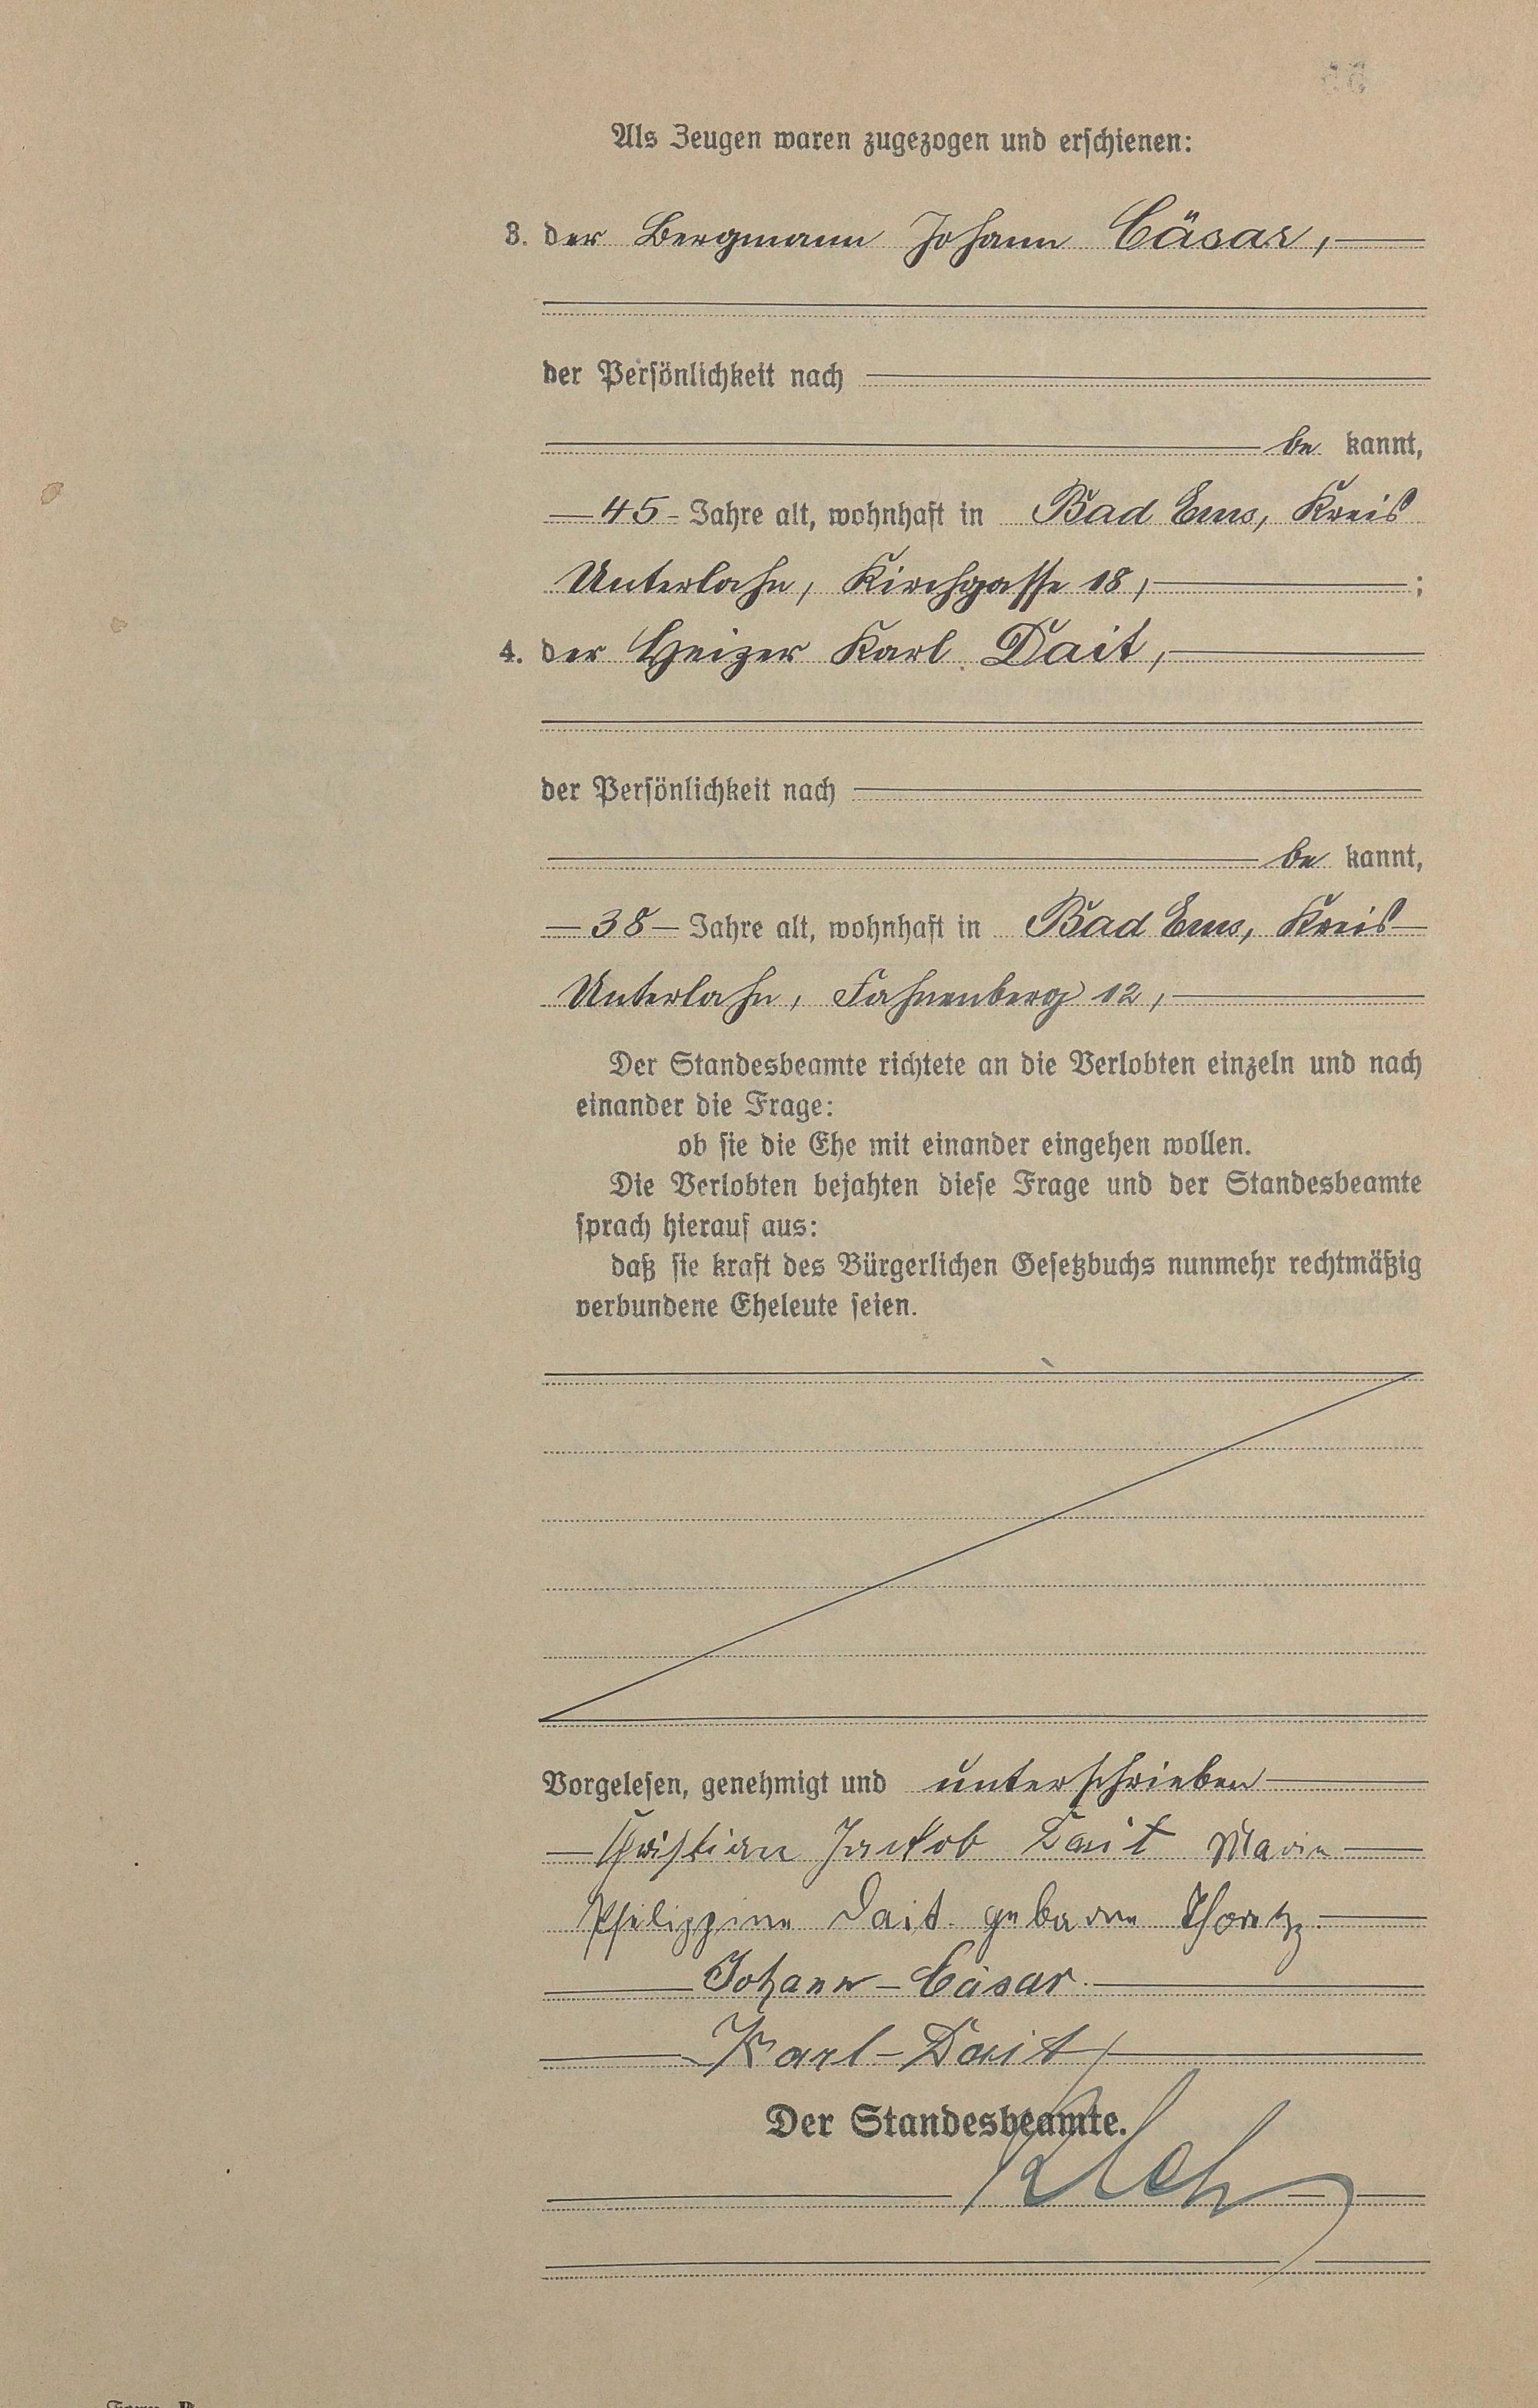 Als Zeugen waren zugezogen und erschienen:
3. der Bergmann Johann Cäsar,
der Persönlichkeit nach
be kannt,
45 Jahre alt, wohnhaft in Bad Ems, Kreis
Unterlahn, Kirchgasse 18, ;
4. der Heizer Karl Dait,
der Persönlichkeit nach
be kannt,
38 Jahre alt, wohnhaft in Bad Ems, Kreis
Unterlahn, Fahnenberg 12,
Der Standesbeamte richtete an die Verlobten einzeln und nach
einander die Frage:
ob sie die Ehe mit einander eingehen wollen.
Die Verlobten bejahten diese Frage und der Standesbeamte
sprach hierauf aus:
daß sie kraft des Bürgerlichen Gesetzbuchs nunmehr rechtmäßig
verbundene Eheleute seien.
Vorgelesen, genehmigt und unterschrieben
Christian Jackob Dait Marie
Philippine Dait geborene
Johann Cäsar
Karl Dait
Der Standesbeamte.